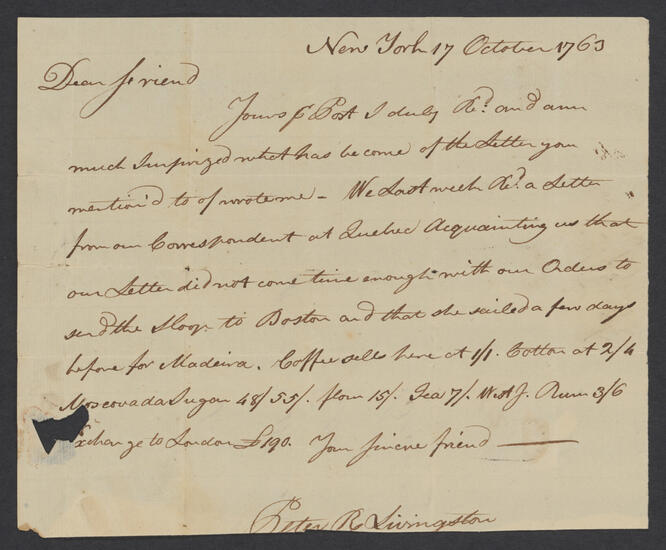 New York 17 October 1763
Dear friend
Yours p Post I duly Re.d and am
much Surprized what has become of the Letter you
mention'd to of wrote me - We Last week Re.d a Letter
from our Correspondent at Quebec Acquainting us that
our Letter did not come time enough with our Orders to
send the Sloop to Boston and that she sailed a few days
before for Madeira. Coffee sells here at 1/1. Cotton at 2/4
Moscovada Sugar 48/ 55/. flour 15/. Tea 7/. West J. Rum 3/6
xchange to London £190. Your sincere friend
Peter R Livingston